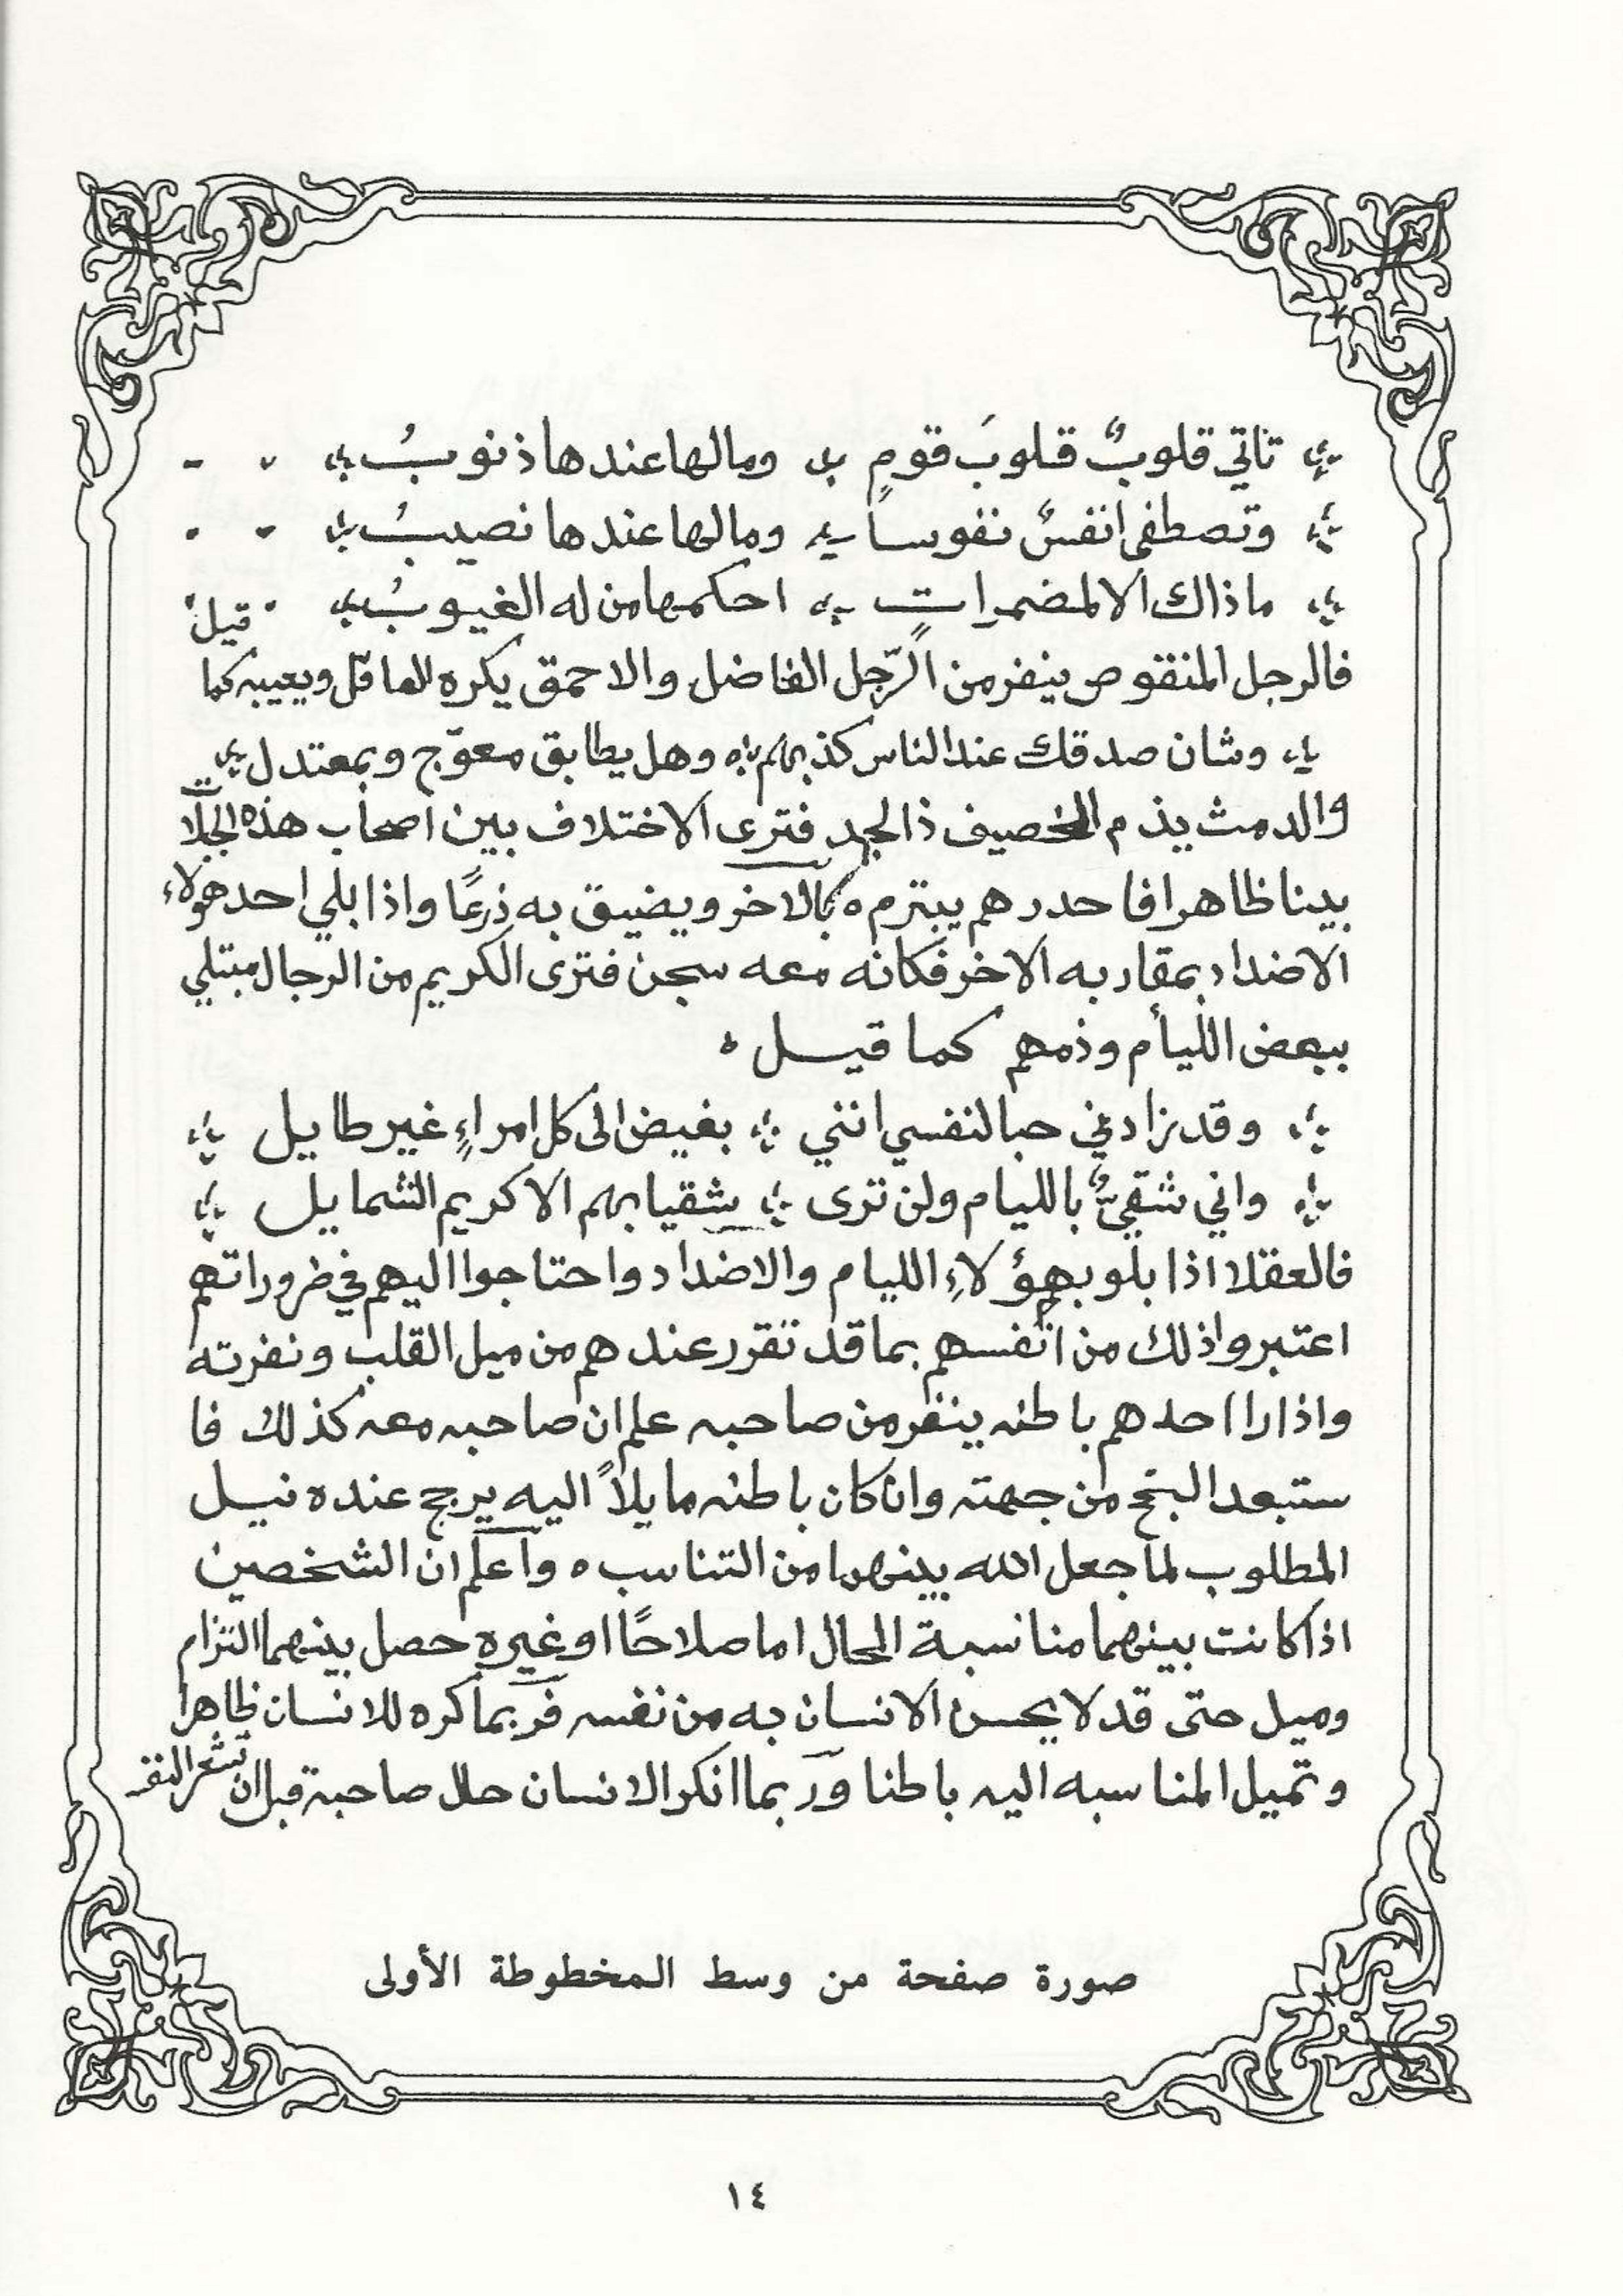 تاتي قلوبٌ قلوبَ قومٍ ومالها عندها ذنوبُ
وتصطفى انفسٌ نفوساً ومالها عندها نصيبُ
ماذاك الا لمضمراتٍ احكمها من له الغيوبُ قيل
فالرجل المنقوص ينفر من الرّجل الفاضل والاحمق يكره العاقل ويعيبه كما
وشان صدقك عند الناس كذبهم وهل يطابق معوّج وبمعتدل
والدمث يذم الخصيف ذا الجد فترى الاختلاف بين اصحاب هذه
بينا ظاهرا فاحدرهم يبترم بالاخر ويضيق به ذرعًا واذا بلي احد هولاء
الاضداد بمقاربه الاخر فكانه معه سجن فترى الكريم من الرجال مبتلي
ببعض اللياْم وذمهم كما قيل ه
وقد زادني حبا لنفسي انني بغيض الى كل امراءٍ غير طايل
واني شقيٌّ باللیام ولن ترى شقيا بهم الا كريم الشمايل
فالعقلا اذا بلو بهؤلاءِ الليام والاضداد واحتاجوا اليهم في ظروراتهم
اعتبروا ذلك من انفسهم بما قد تقرر عندهم من ميل القلب ونفرته
واذا راا احدهم باطنه ينفر من صاحبه علم ان صاحبه معه كذلك فا
ستبعد البنح من جهته وان كان باطنه مايلاً اليه يرجح عنده نيل
المطلوب لما جعل الله بينهما من التناسب ه واعلم ان الشخصين
اذا كانت بينهما منا نسبة الحال اما صلاحًا او غيره حصل بينهما التزام
وميل حتى قد لا يحسن الانسان به من نفسه فربما كره للانسان ظاهرا
وتميل المناسبه اليه باطنا وربما انكر الانسان حلل صاحبة قبل ان
صورة صفحة من وسط المخطوطة الأولى
١٤